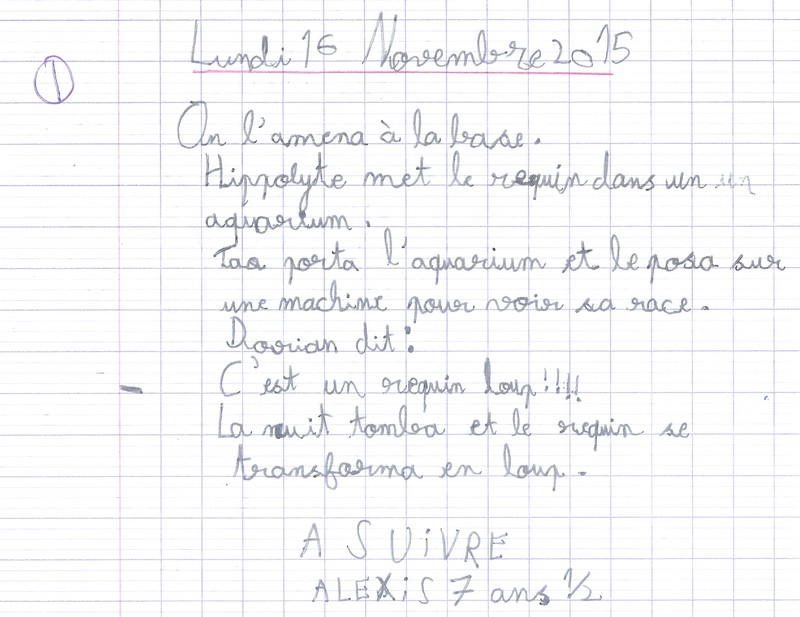 Lundi 16 Novembre 2015
1
On l'amena à la base.
Hippolyte met le requin dans un un
aquarium.
Tao porta l'aquarium et le posa sur
une machine pour voir sa race.
Dorian dit :
- C'est un requin loup!!!!
La nuit tomba et le requin se
transforma en loup.
A SUiVRE
ALEXiS 7 ans 1/2